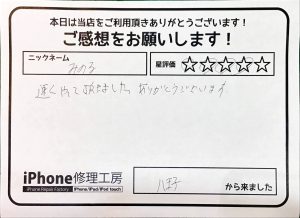 本日は当店をご利用頂きありがとうございます!
ご感想をお願いします!
ニックネーム
みのる
星評価 ☆☆☆☆☆
速くやって頂きました ありがとうございます。
iPhone修理工房
iPhone Repair Factory iPhone/iPad/iPod touch
八王子 から来ました